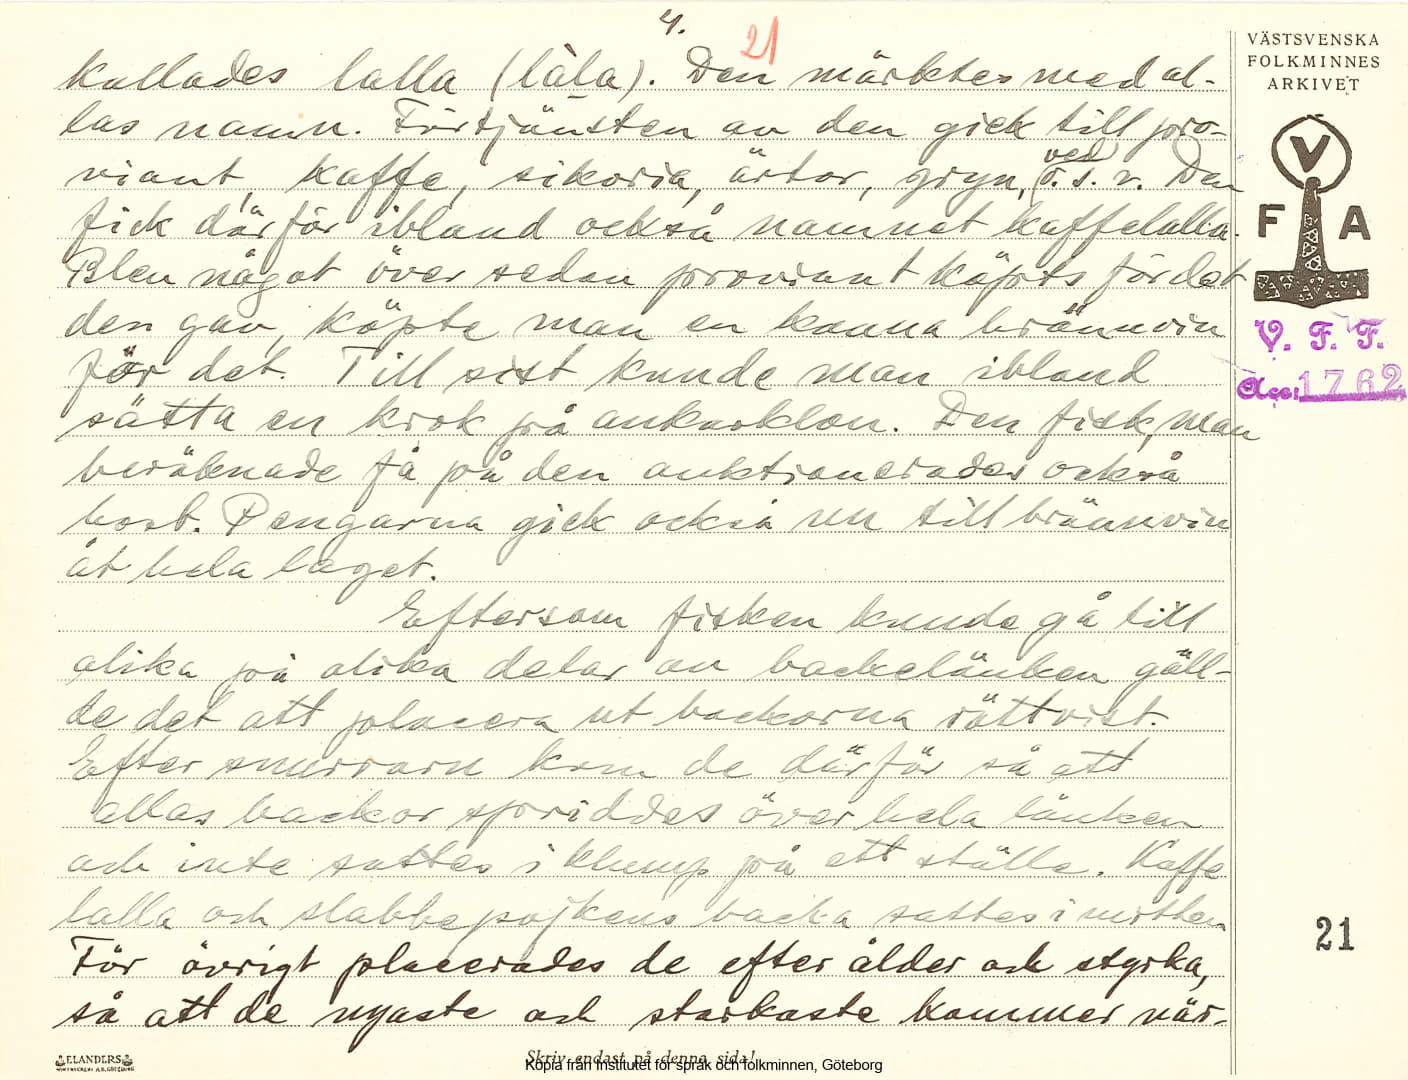 4.
21
kallades lalla (låla). Den märktes med al-
las namn. Förtjänsten av den gick till pro-
viant, kaffe, sikoria, ärtor, gryn, ved o.s.v. Den
fick därför ibland också namnet kaffelalla.
Blev något över sedan proviant köpts för det
den gav, köpte man en kanna brännvin
för det. Till sist kunde man ibland
sätta en krok på ankarklon. Den fisk, man
beräknade få på den auktionerades också
bort. Pengarna gick också nu till brännvin
åt hela laget.
Eftersom fisken kunde gå till
olika på olika delar av backelänken gäll-
de det att placera ut backorna rättvist.
Efter snurrarn kom de därför så att
allas backor spriddes över hela länken
och inte sattes i klump på ett ställe. Kaffe
lalla och slabbepojkens backa sattes i mitten
För övrigt placerades de efter ålder och styrka,
så att de nyaste och starkaste kommer när-
VÄSTSVENSKA
FOLKMINNES
ARKIVET
V
F A
V. F. F.
Acc: 1762
21
ELANDERS
Skriv endast på denna sida!
Kopia från Institutet för språk och folkminnen, Göteborg